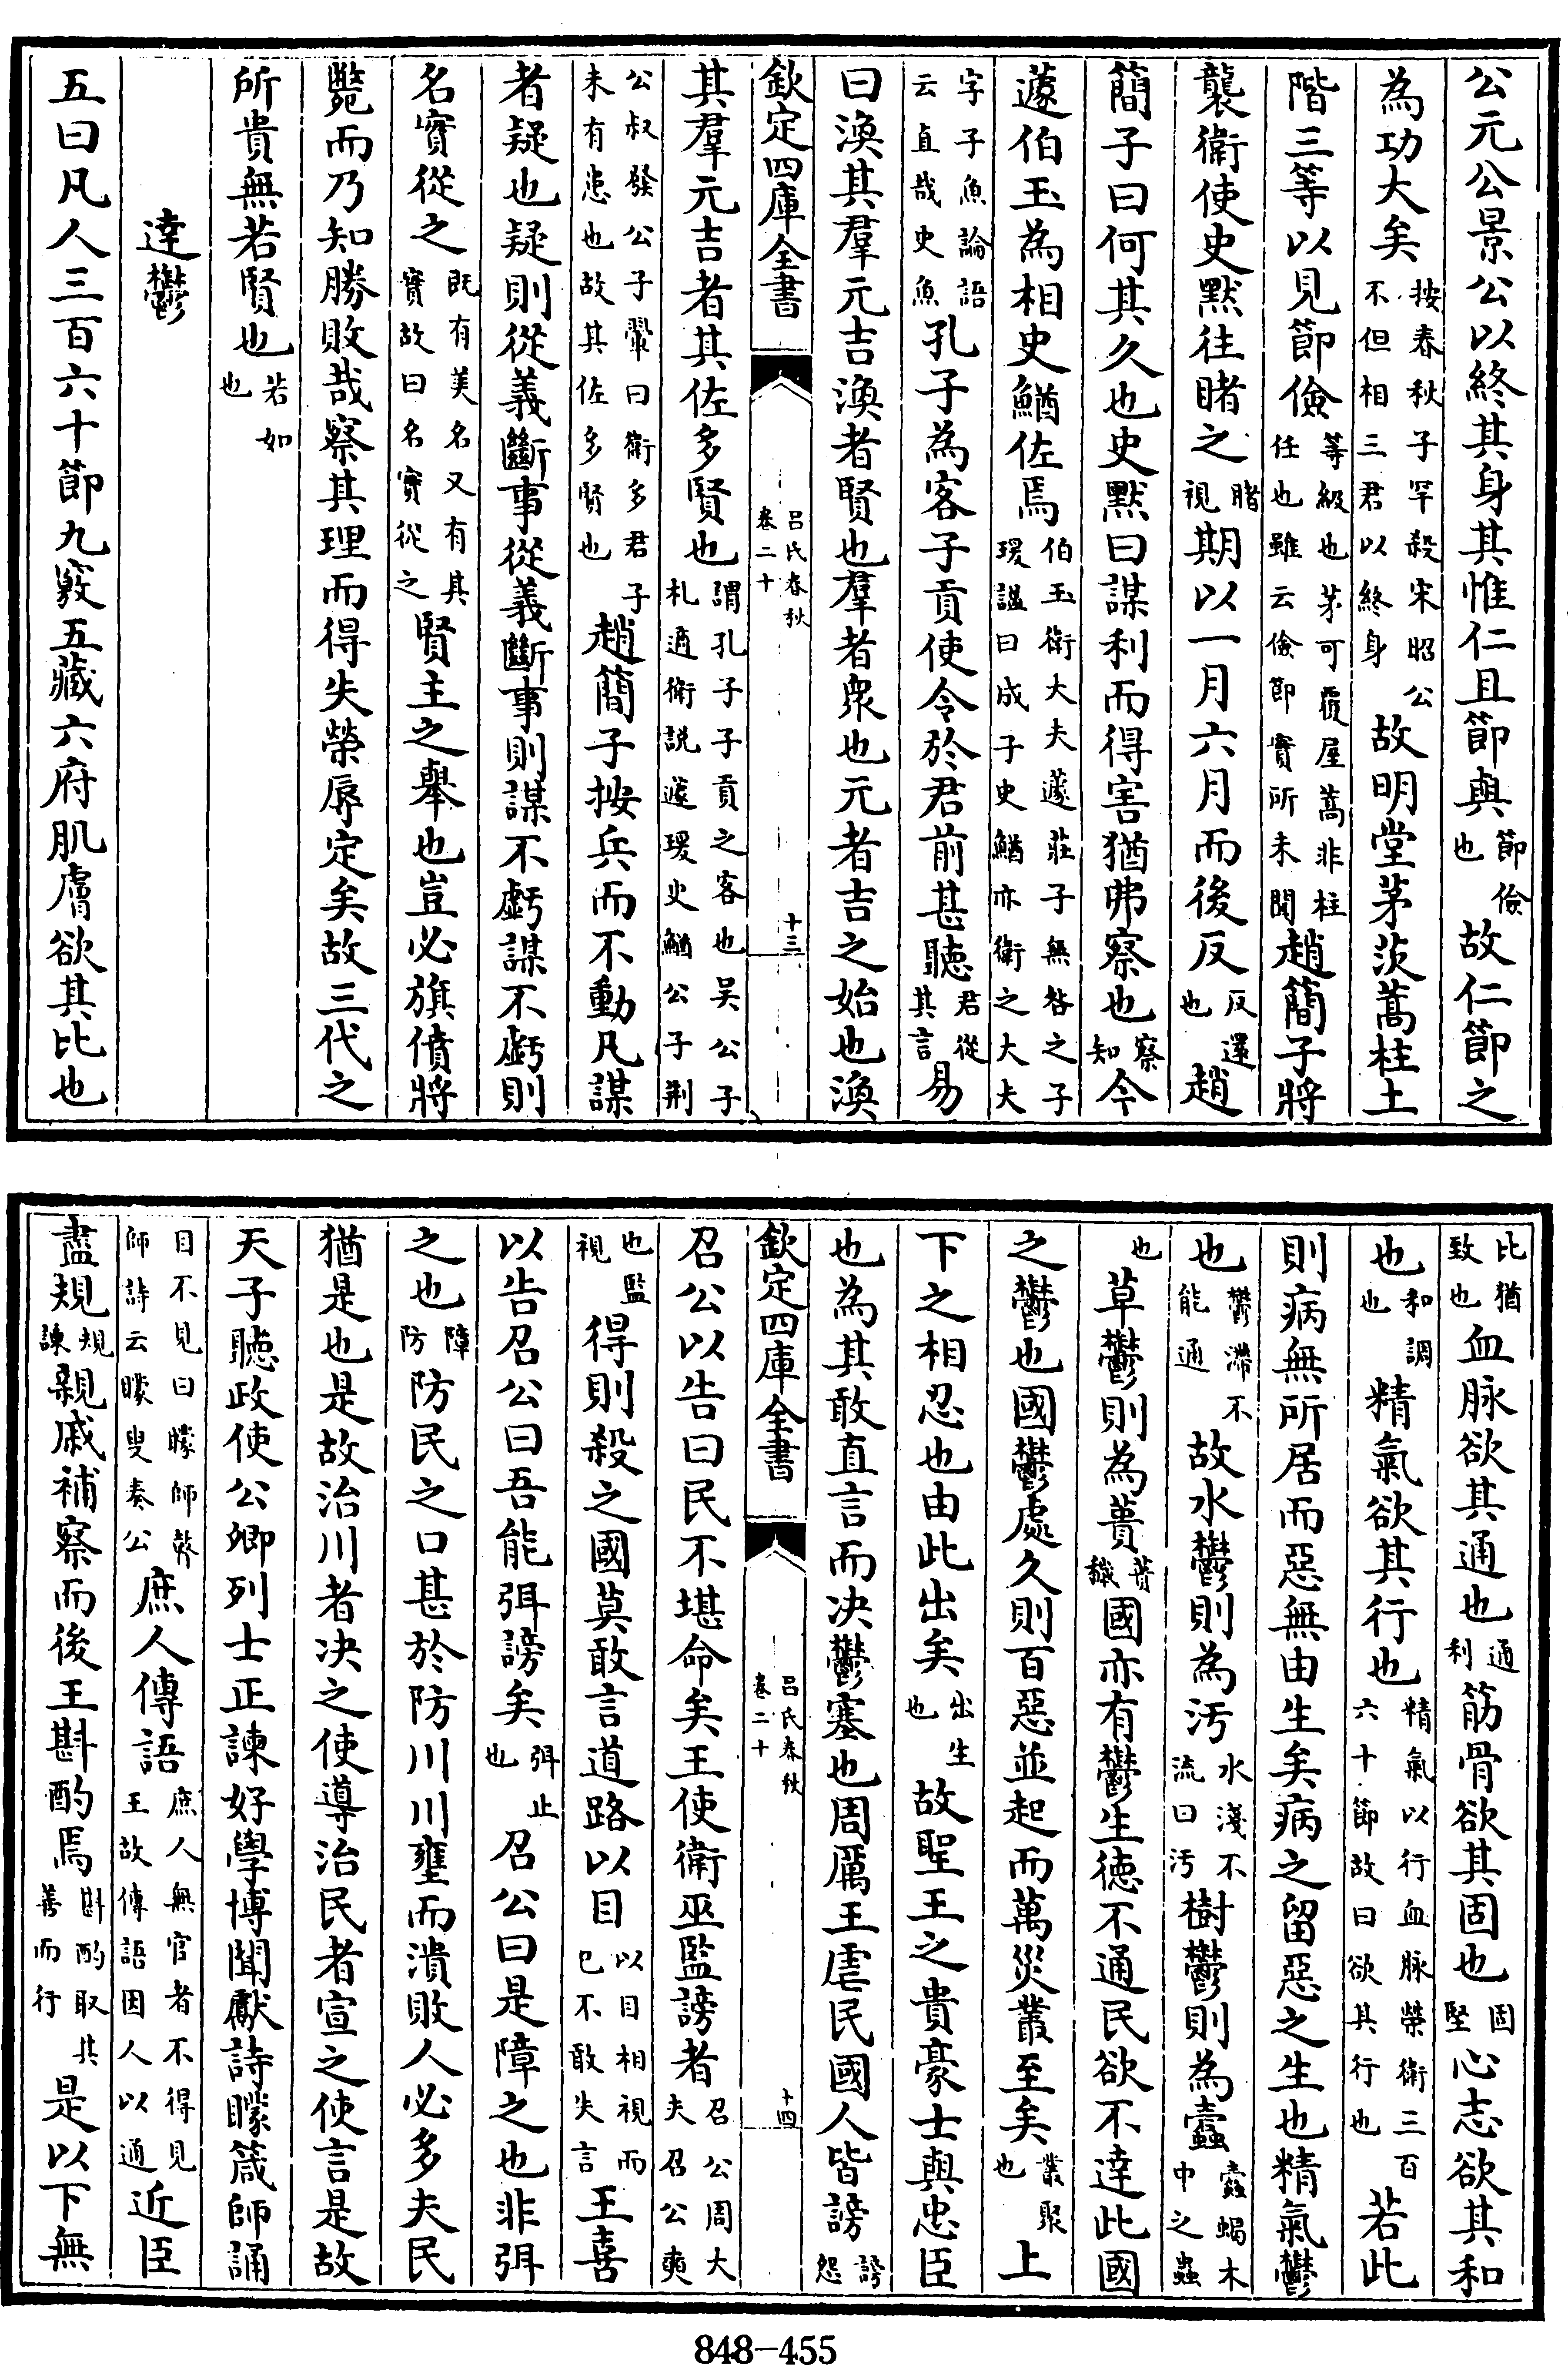 公元公景公以終其身其惟仁且節與節儉也故仁節之
為功大矣按春秋子罕殺宋昭公不但相三君以終身故明堂茅茨蒿柱土
階三等以見節儉等級也茅可覆屋蒿非柱任也雖云儉節實所未聞趙簡子將
襲衛使史默往睹之睹視期以一月六月而後反反還也趙
簡子曰何其久也史默曰謀利而得害猶弗察也察知今
蘧伯玉為相史鰌佐焉伯玉衛大夫蘧莊子無咎之子瑗諡曰成子史鰌亦衛之大夫
字子魚論語云直哉史魚孔子為客子貢使令於君前甚聽君從其言易
曰渙其羣元吉渙者賢也羣者衆也元者吉之始也渙
欽定四庫全書 呂氏春秋 卷二十 十三
其羣元吉者其佐多賢也謂孔子子貢之客也吳公子札適衛説蘧瑗史鰌公子荆
公叔發公子鞏曰衛多君子未有患也故其佐多賢也趙簡子按兵而不動凡謀
者疑也疑則從義斷事從義斷事則謀不虧謀不虧則
名實從之既有美名又有其實故曰名實從之賢主之舉也豈必旗僨將
斃而乃知勝敗哉察其理而得失榮辱定矣故三代之
所貴無若賢也若如也
達鬱
五曰凡人三百六十節九竅五藏六府肌膚欲其比也
比猶致也血脉欲其通也通利筋骨欲其固也固堅心志欲其和
也和調也精氣欲其行也精氣以行血脉榮衛三百六十節故曰欲其行也若此
則病無所居而惡無由生矣病之留惡之生也精氣鬱
也鬱滯不能通故水鬱則為汚水淺不流曰汚樹鬱則為蠹蠹蝎木中之蟲
也草鬱則為蕢蕢穢國亦有鬱生德不通民欲不達此國
之鬱也國鬱處久則百惡並起而萬災叢至矣叢聚也上
下之相忍也由此出矣出生也故聖王之貴豪士與忠臣
也為其敢直言而決鬱塞也周厲王虐民國人皆謗謗怨
欽定四庫全書 呂氏春秋 卷二十 十四
召公以告曰民不堪命矣王使衛巫監謗者召公周大夫召公奭
也監視得則殺之國莫敢言道路以目以目相視而已不敢失言王喜
以告召公曰吾能弭謗矣弭止也召公曰是障之也非弭
之也障防防民之口甚於防川川壅而潰敗人必多夫民
猶是也是故治川者決之使導治民者宣之使言是故
天子聽政使公卿列士正諫好學博聞獻詩矇箴師誦
目不見曰矇師瞽師詩云矇叟奏公庶人傳語庶人無官者不得見王故傳語因人以通近臣
盡規規諫親戚補察而後王斟酌焉斟酌取其善而行是以下無
848-455